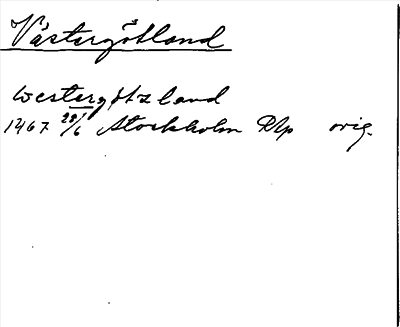 Västergötland
westergötzland
1467 28/6 Stockholm RAp orig.